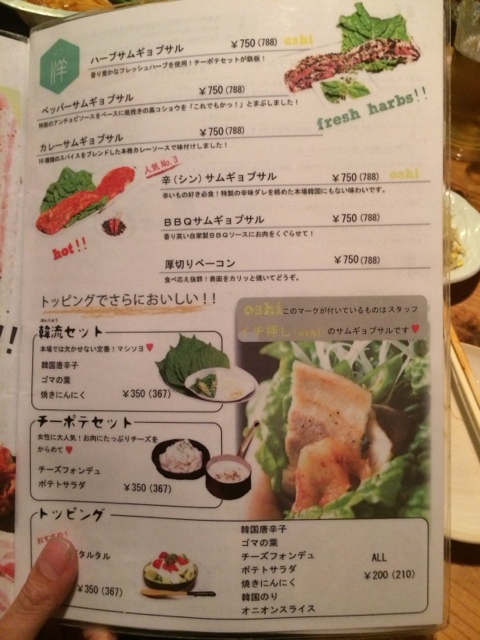 洋
ハーブサムギョプサル ￥750(788) oshi
香り豊かなフレッシュハーブを使用！チーポテセットが鉄板！
ペッパーサムギョプサル ￥750(788)
特製のアンチョビソースをベースに粗挽きの黒コショウを「これでもかっ！」とまぶしました！
カレーサムギョプサル ￥750(788)
10種類のスパイスをブレンドした本格カレーソースで味付けしました！
fresh harbs!!
人気 No.3
辛(シン)サムギョプサル ￥750(788) oshi
辛いもの好き必食！特製の辛味ダレを絡めた本場韓国にもない味わいです。
hot!!
BBQサムギョプサル ￥750(788)
香り高い自家製BBQソースにお肉をくぐらせて！
厚切りベーコン ￥750(788)
食べ応え抜群！表面をカリッと焼いてどうぞ。
トッピングでさらにおいしい！！
oshi このマークが付いているものはスタッフ
イチ押し・oshi のサムギョプサルです♥
韓流セット
本場では欠かせない定番！マシソヨ♥
韓国唐辛子
ゴマの葉
焼きにんにく ￥350(367)
チーポテセット
女性に大人気！お肉にたっぷりチーズを
からめて♥
チーズフォンデュ
ポテトサラダ ￥350(367)
トッピング
おすすめ！
タルタル
￥350(367)
韓国唐辛子
ゴマの葉
チーズフォンデュ
ポテトサラダ
焼きにんにく
韓国のり
オニオンスライス
ALL
￥200(210)